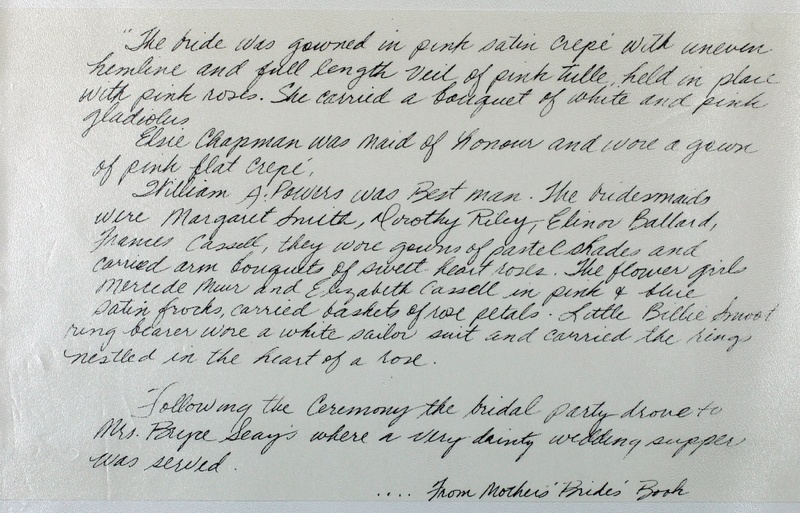 "The bride was gowned in pink satin crepé with uneven
hemline and full length veil of pink tulle, held in place
with pink roses. She carried a bouquet of white and pink
gladiolus
Elsie Chapman was maid of honour and wore a gown
of pink flat crepé.
William A. Powers was Best man. The bridesmaids
were Margaret Smith, Dorothy Riley, Elinor Ballard,
Frances Cassell, they wore gowns of pastel shades and
carried arm bouquets of sweet heart roses. The flower girls
Mercede Muir and Elizabeth Cassell in pink & blue
satin frocks, carried baskets of rose petals. Little Billie Smoot
ring bearer wore a white sailor suit and carried the rings
nestled in the heart of a rose.
Following the Ceremony the bridal party drove to
Mrs. Seay's where a very dainty wedding supper
was served.
.... From Mothers' Brides' Book